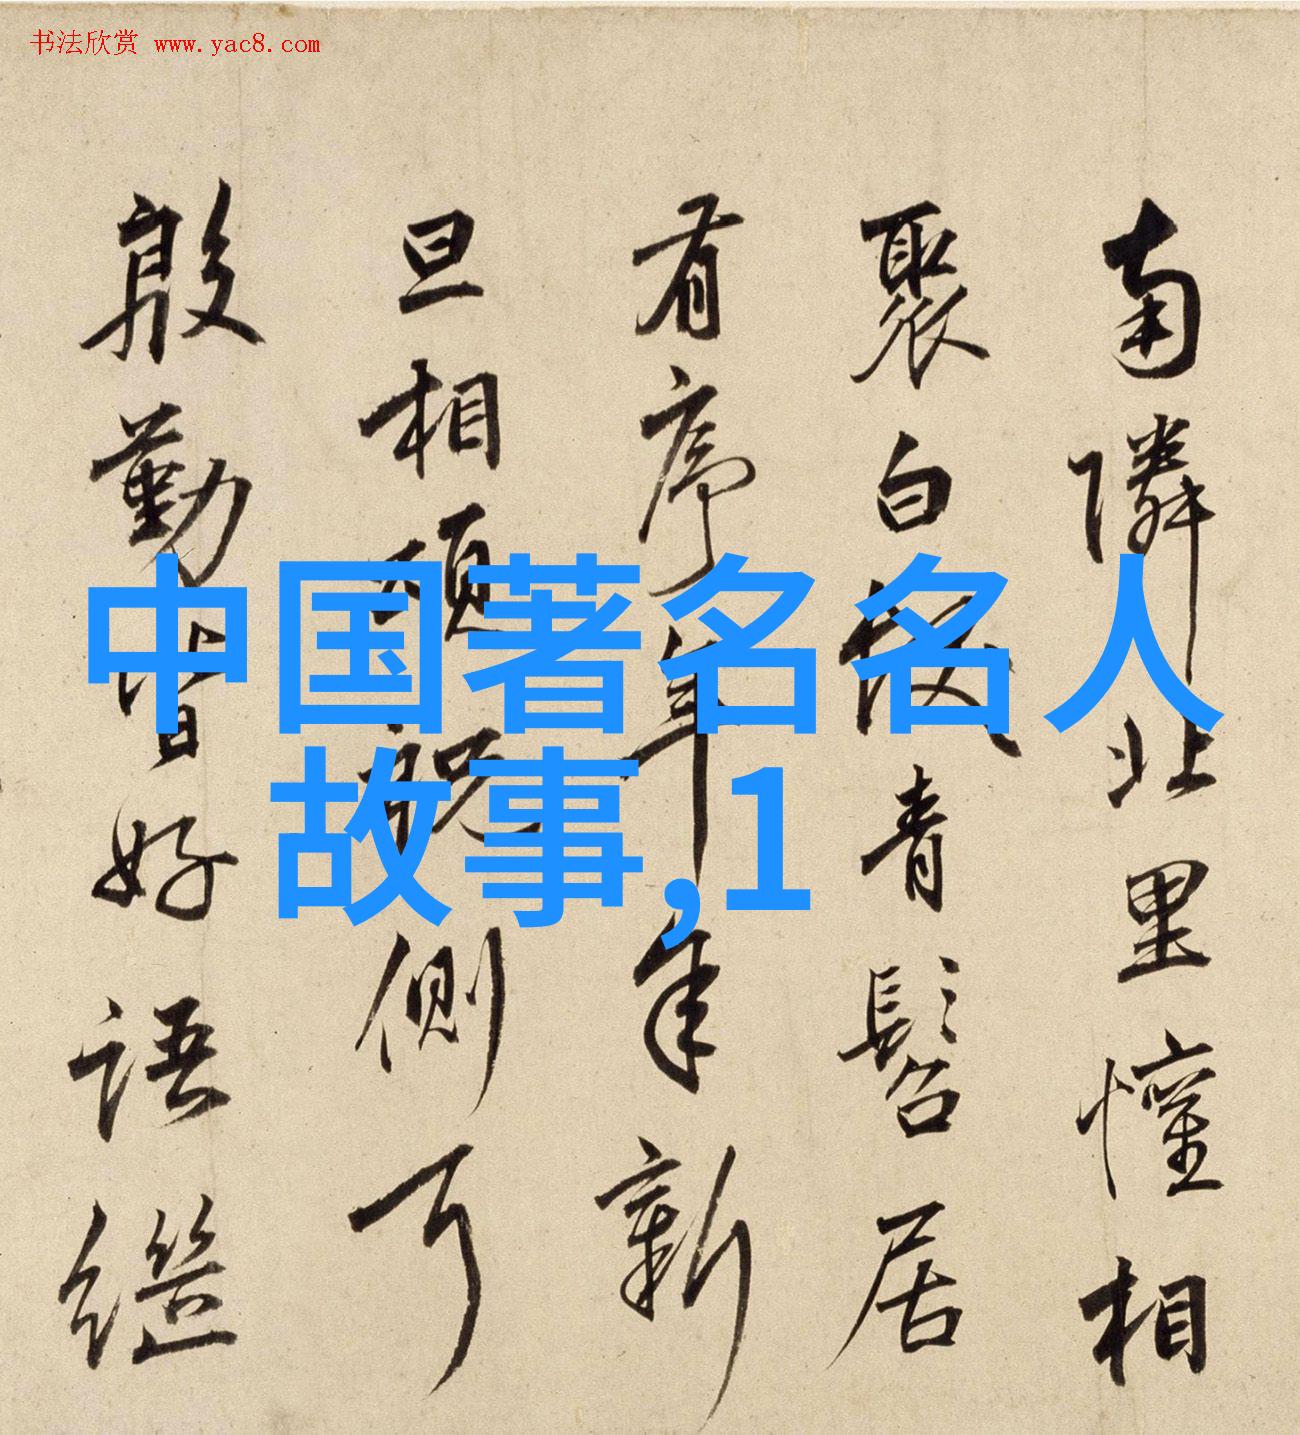 书法欣赏 www.yac8.com
南隣北里懽相
聚白髮青髫居
有序年年新
旦相頌祝側耳
殷勤皆好語繼
中国著名名人
故事,1